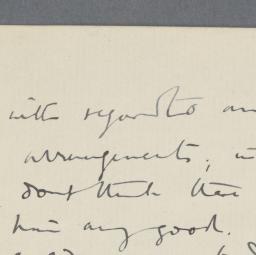 with regard to an
arrangements, in
don't think there
him any good.